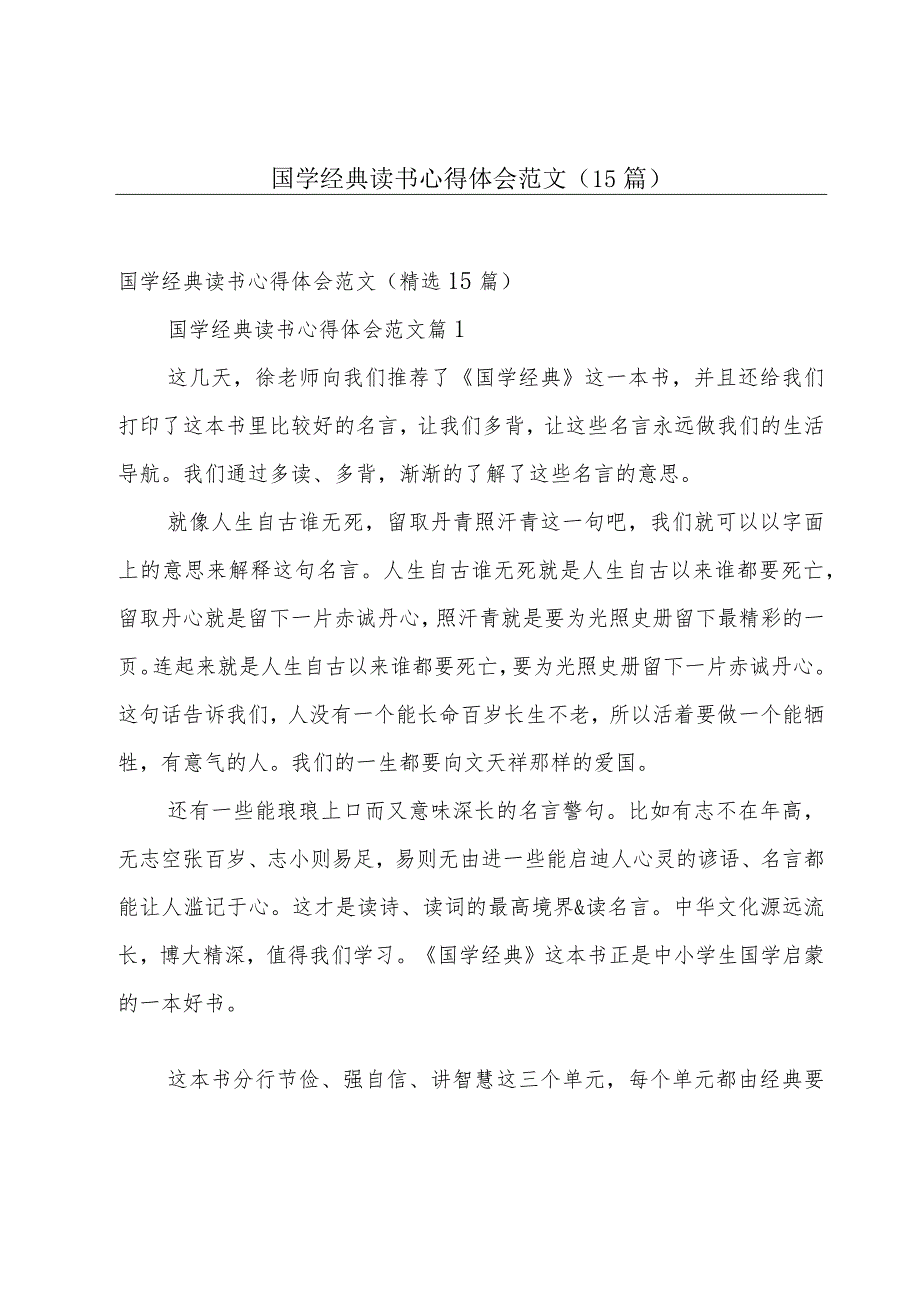 国学经典读书心得体会范文（15篇）
国学经典读书心得体会范文（精选15篇）
国学经典读书心得体会范文篇1
这几天，徐老师向我们推荐了《国学经典》这一本书，并且还给我们
打印了这本书里比较好的名言，让我们多背，让这些名言永远做我们的生活
导航。我们通过多读、多背，渐渐的了解了这些名言的意思。
就像人生自古谁无死，留取丹青照汗青这一句吧，我们就可以以字面
上的意思来解释这句名言。人生自古谁无死就是人生自古以来谁都要死亡，
留取丹心就是留下一片赤诚丹心，照汗青就是要为光照史册留下最精彩的一
页。连起来就是人生自古以来谁都要死亡，要为光照史册留下一片赤诚丹心。
这句话告诉我们，人没有一个能长命百岁长生不老，所以活着要做一个能牺
牲，有意气的人。我们的一生都要向文天祥那样的爱国。
还有一些能琅琅上口而又意味深长的名言警句。比如有志不在年高，
无志空张百岁、志小则易足，易则无由进一些能启迪人心灵的谚语、名言都
能让人滥记于心。这才是读诗、读词的最高境界&读名言。中华文化源远流
长，博大精深，值得我们学习。《国学经典》这本书正是中小学生国学启蒙
的一本好书。
这本书分行节俭、强自信、讲智慧这三个单元，每个单元都由经典要